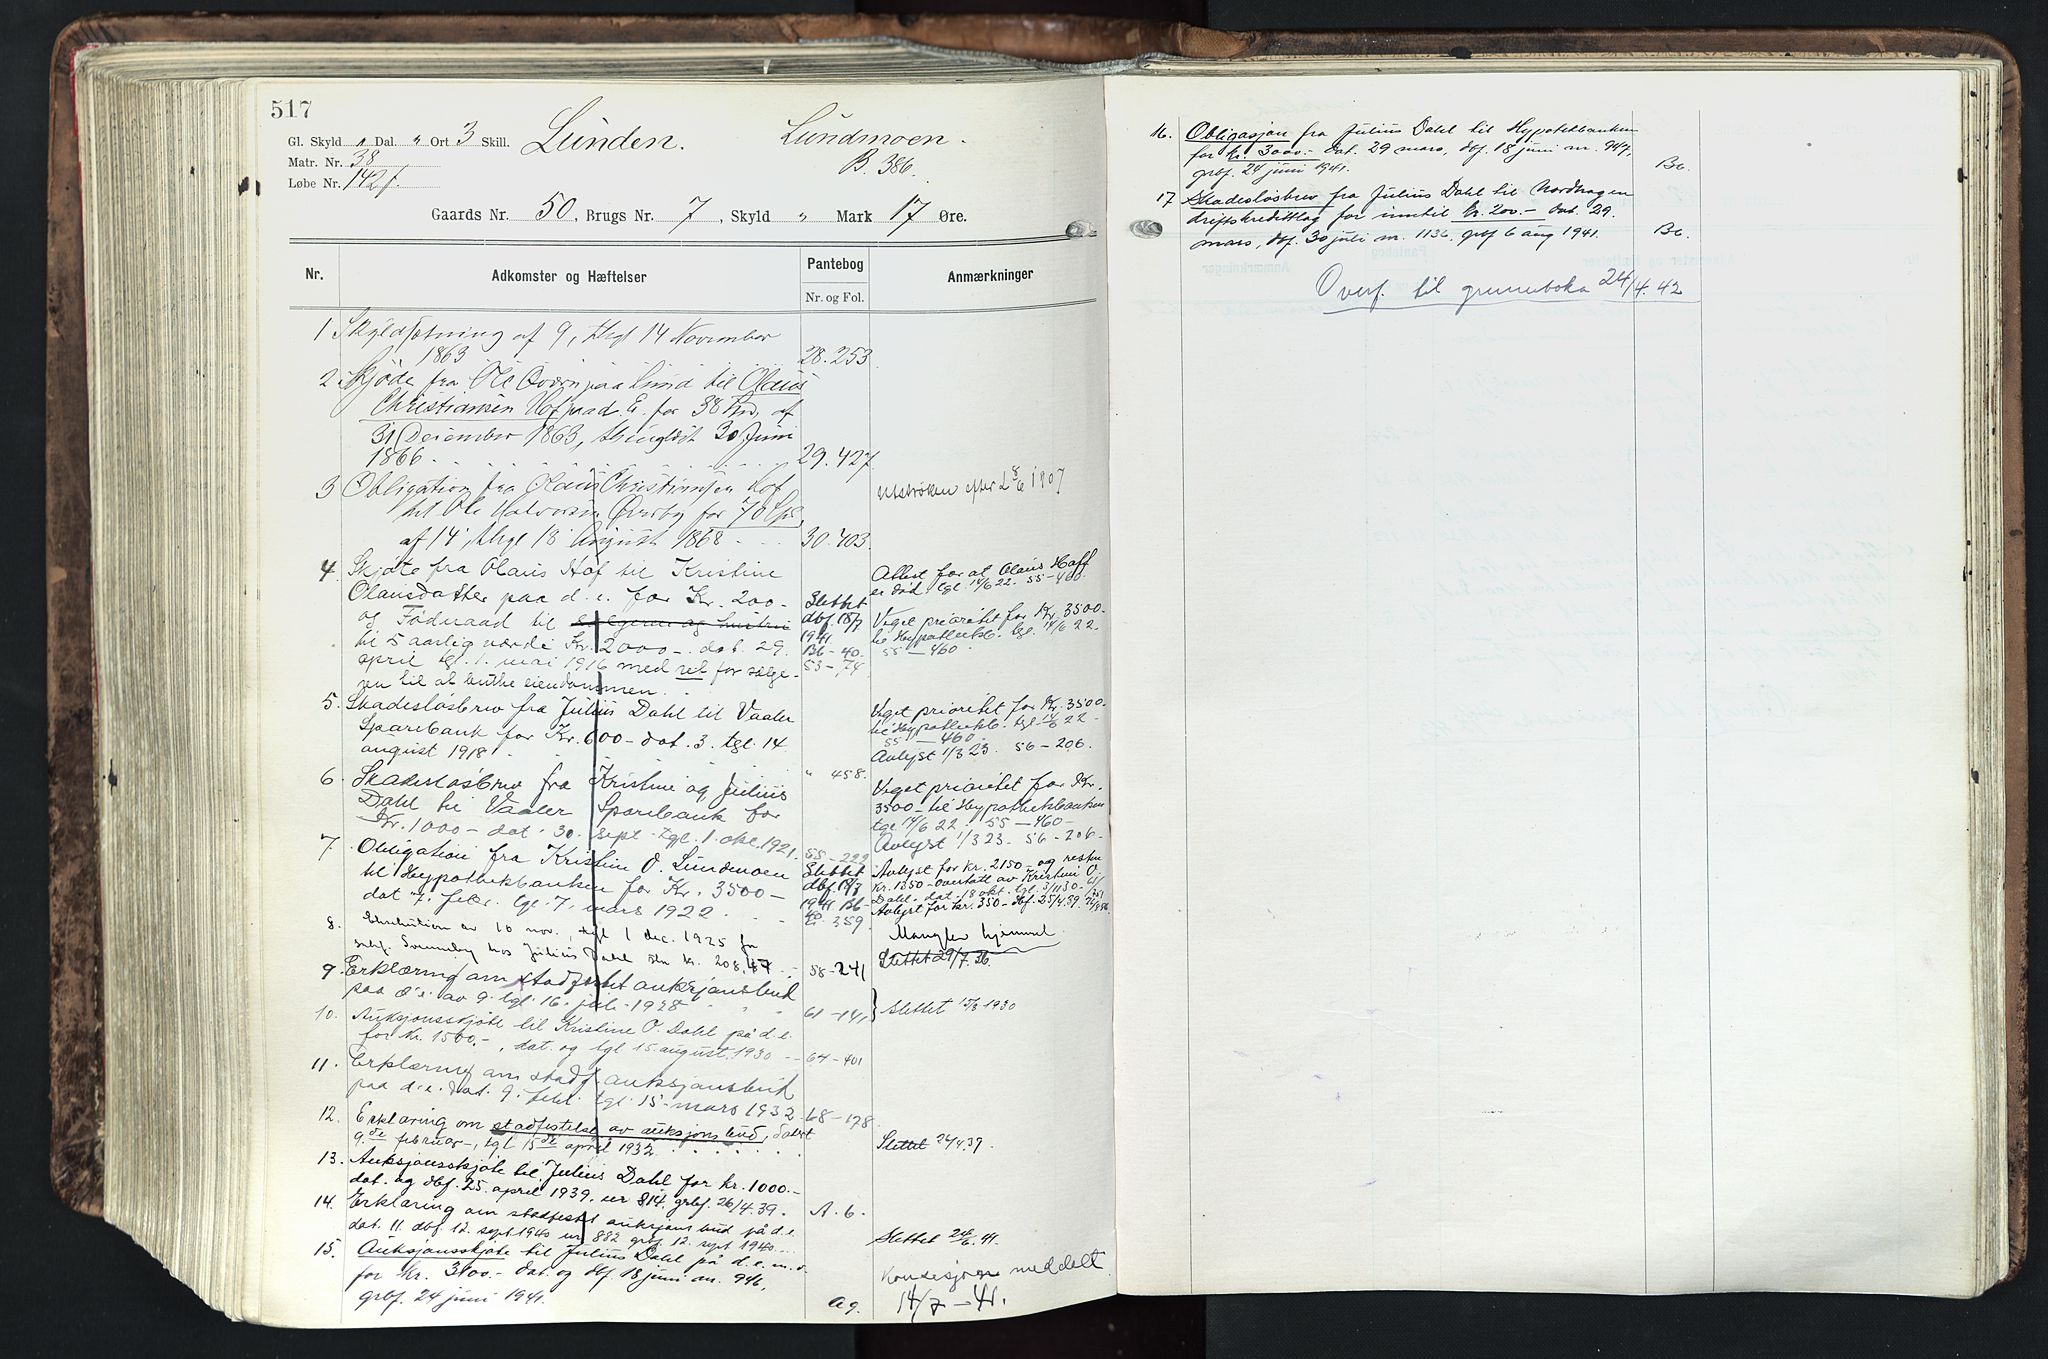 517
Gl. Skyld „ Dal. „ Ort 3 Skill. Lunden. Lundmoen.
Matr. Nr. 38 B. 386.
Løbe Nr. 142f.
Gaards Nr. 50, Brugs Nr. 7, Skyld „ Mark 17 Øre.
Nr. Adkomster og Hæftelser Pantebog Anmærkninger
Nr. og Fol.
1 Skyldsætning af 9, thgl 14 November
1863 28.253
2 Skjøde fra Ole paa Lund til Olaus
Christiansen Hof paa d. E. for 38 Spd, af
31 December 1863, thinglæst 30 Juni
1866. 29.427
3 Obligation fra Olaus Christiansen Hof Utstrøken efter L 8/6 1907
til Ole Halvorsen Øversby for 70 Spd,
af 14, thgl 18 August 1868 30.403.
4. Skjøte fra Olaus Hof til Kristine Attest for at Olaus Hoff
Olausdatter paa d. e. for Kr. 200- Slettet er død. tgl. 14/6 22. 55-460.
og Føderaad til sælgeren og hustru dbf. 18/7 Veget prioritet for Kr. 3500-
til 5 aarlig værdi Kr. 2000-. dat. 29. 1941 til Hypothekb. tgl. 14/6 22.
april tgl. 1. mai 1916 med ret for sælge- B6-40. 53-74 55-460.
ren til at bruke eiendommen.
5. Skadesløsbrev fra Julius Dahl til Vaaler Veget prioritet for Kr. 3500-
Sparebank for Kr. 600- dat. 3. tgl. 14. til Hypothekb. tgl. 14/6 22-
august 1918. „ 458. 55-460.
Avlyst 1/3 23. 56-206.
6. Skadesløsbrev fra Kristine og Julius Veget prioritet for Kr.
Dahl til Vaaler Sparebank for 3500- til Hypothekbanken
Kr. 1000- dat. 30. sept. tgl. 1. okt. 1921. 55-222 tgl. 14/6 22. 55-460-
Avlyst 1/3 23. 56-206-
7. Obligation fra Kristine O. Lundmoen Slettet Avlyst for kr. 2150- og resten
til Hypothekbanken for Kr. 3500- dbf. 18/7 kr. 1350- overtatt av Kristine O.
dat. 7. febr. tgl. 7. mars 1922. 1941 B6-40 359. Dahl. dat. 18 okt. tgl. 3/11 30-
Avlyst for kr. 350- dbf. 25/4.39.
8. Eksekution av 10 nov., tgl 1 dec. 1925 for Mangler hjemmel
hos Julius Dahl for kr. 208,47. 58-241 Slettet 29/7.26.
9. Erklæring om stadfestet auksjonsbud
paa d.e. av 9. tgl. 16. juli 1928 61-141 } Slettet 15/8 1930
10. Auksjonsskjøte til Kristine O. Dahl på d.e.
for kr. 1500.-, dat. og tgl 15. august 1930 64-401
11. Erklæring om stadf. auksjonsbud
paa d.e. dat. 9. febr. tgl. 15. mars 1932. 68-178.
12. Erklæring om stadfestelse av auksjonsbud, datert
9de februar, tgl 15de april 1932 Slettet 24.4.39.
13. Auksjonsskjøte til Julius Dahl for kr. 1000.-
dat. og dbf. 25. april 1939. nr 814. grbf. 26/4.39. A. 6.
14. Erklæring om stadfestet auksjons bud på d.e.
dat. 11. dbf. 12. sept 1940 nr 882 grbf. 12. sept 1940 Slettet 24/6.41.
15. Auksjonsskjøte til Julius Dahl på d.e. m.
for kr. 3100.- Dat. og dbf. 18 juni nr. 946, Konsesjon meddelt
grbf. 24 juni 1941. A9. 14/7-41.
16. Obligasjon fra Julius Dahl til Hypotekbanken
for kr. 3000.- dat. 29 mars, dbf. 18 juni nr. 947,
grbf. 24 juni 1941. B6.
17 Skadesløsbrev fra Julius Dahl til Nordhagen
driftskredittlag for inntil kr. 200.- Dat. 29.
mars, dbf. 30 juli nr. 1136, grbf 6 aug 1941. B6.
Overf. til grunnboka 24/4.42